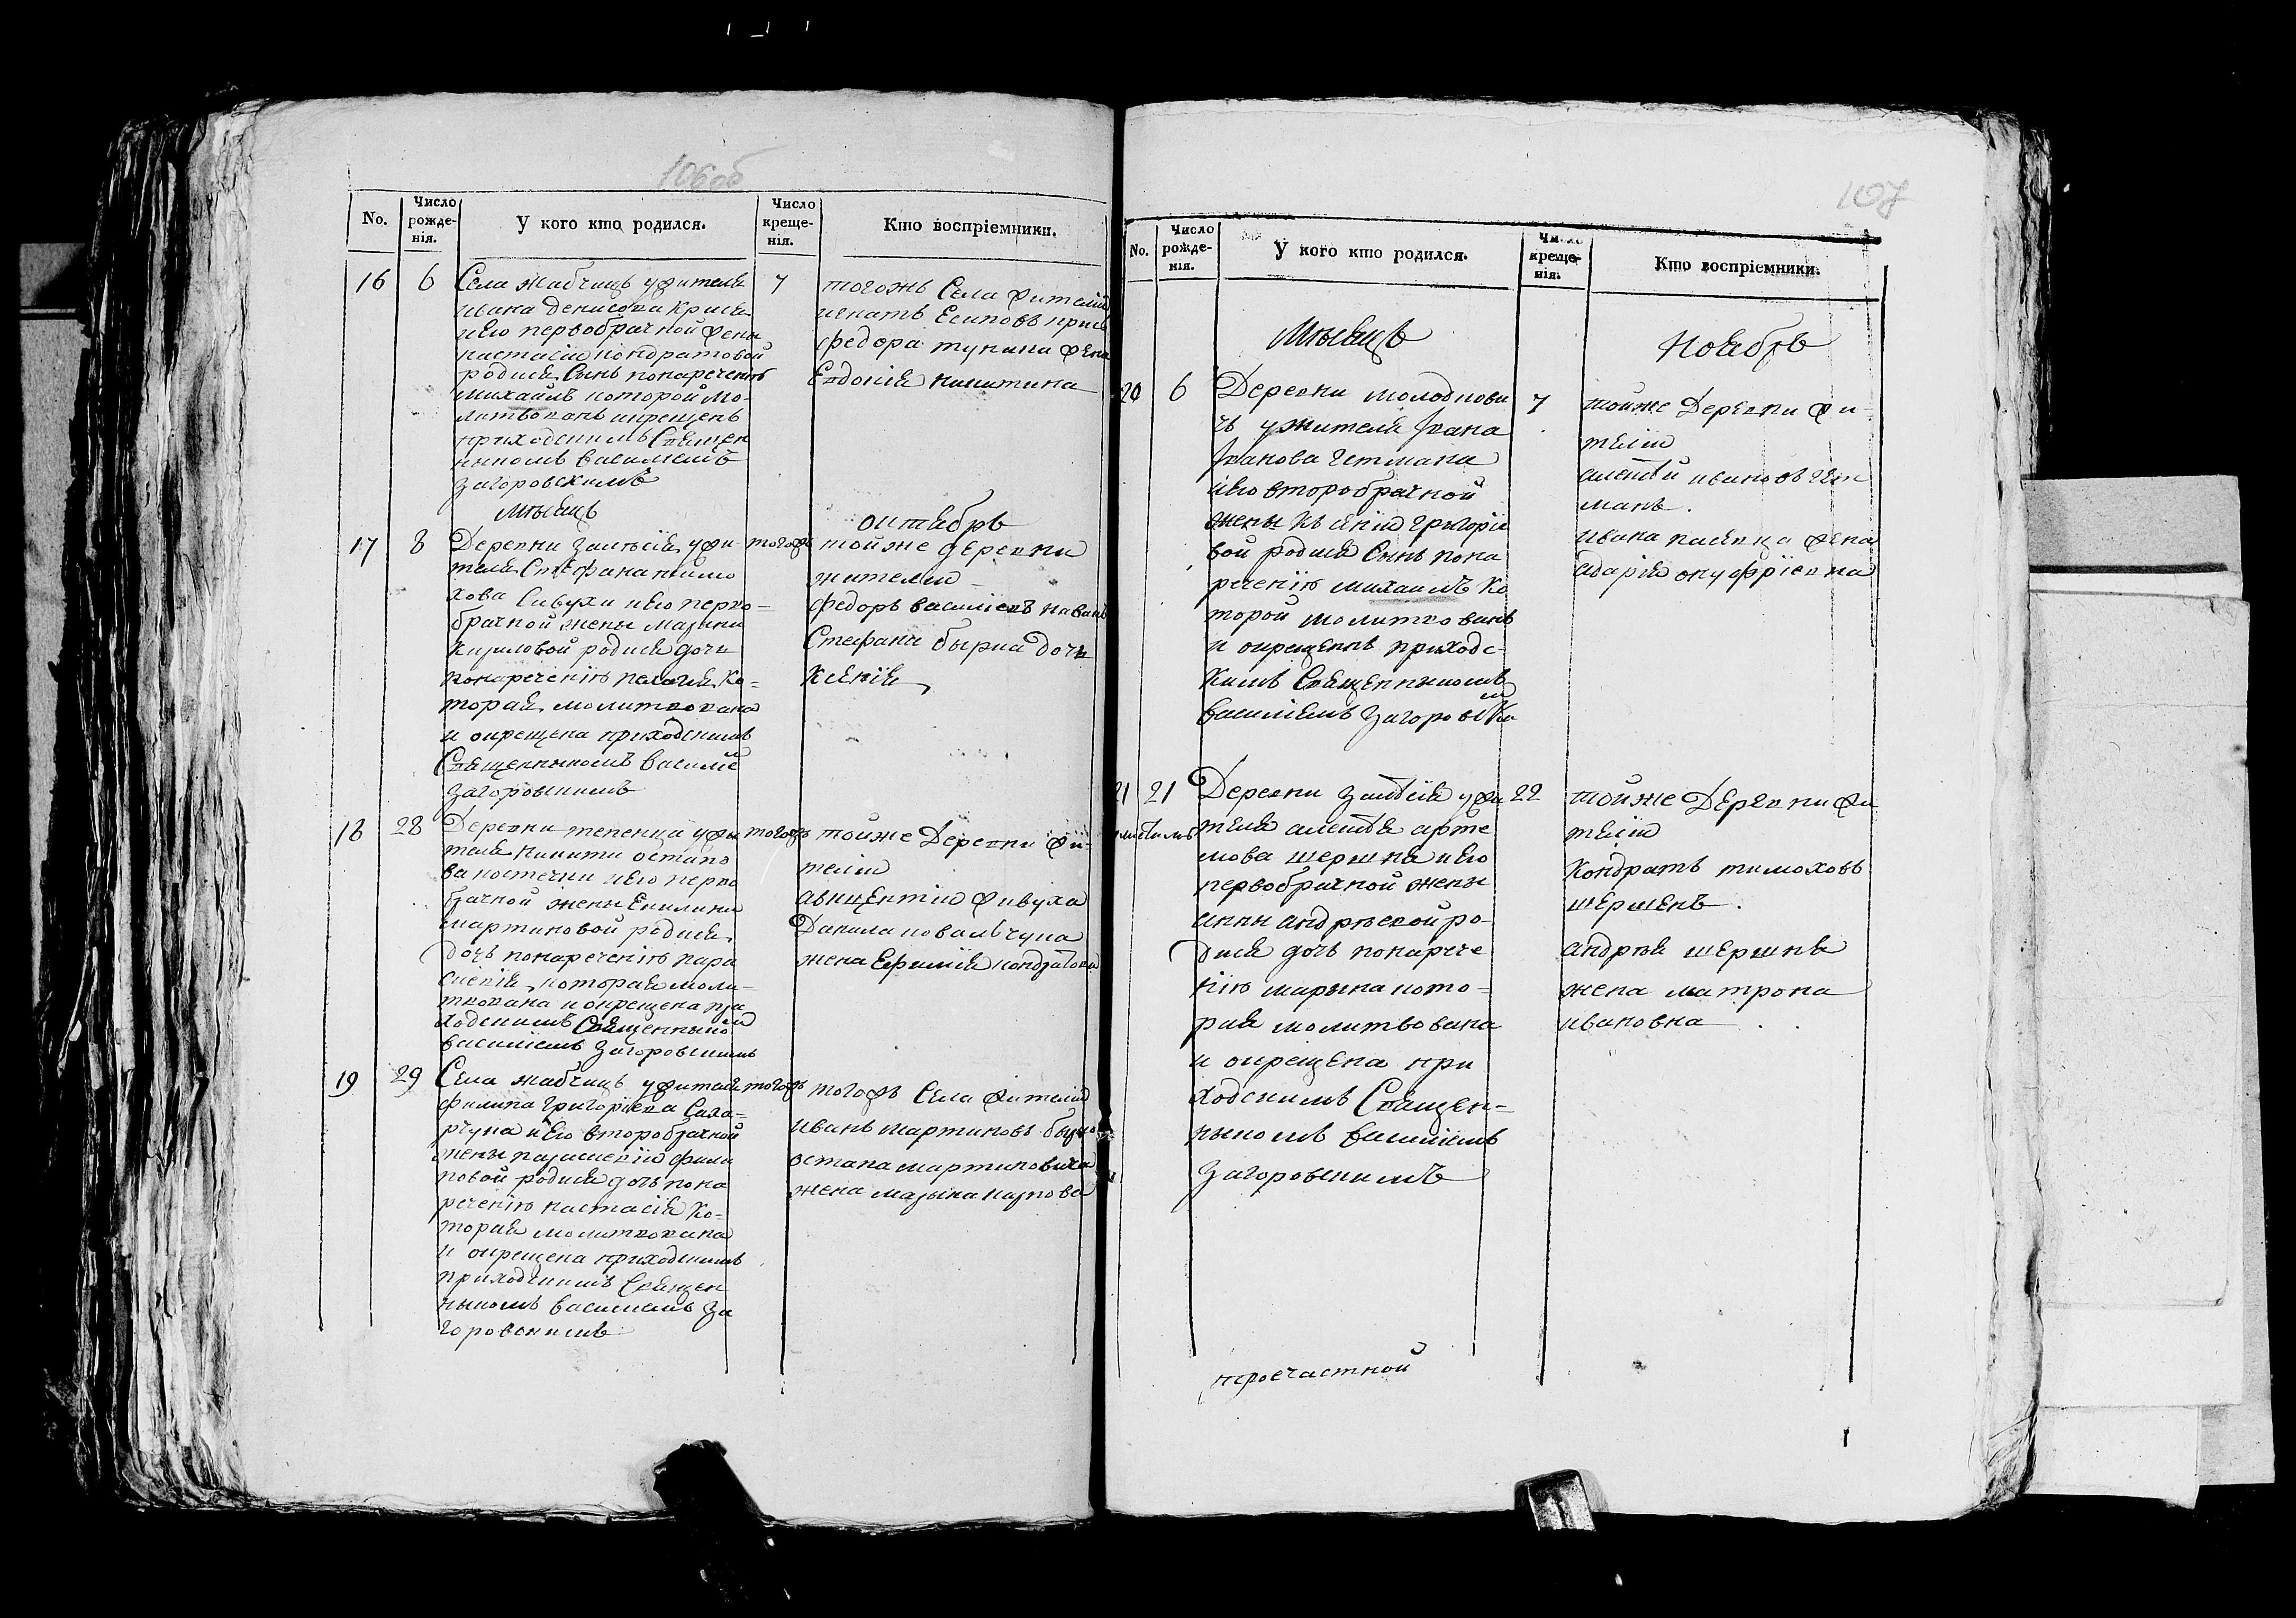 106об
No.
Число рожде-нія.
У кого кто родился.
Число креще-нія.
Кто воспріемники.
16
6
Села Жабчицъ ужителя
Ивана Денисова
иего первобрачной жены
настасіи кондратовой
родился Сынъ понареченію
михаилъ которой мо-
литвованъ икрещенъ
приходскимъ Священ
ныкомъ василіемъ
Загоровскимъ
7
тогожъ Села жители
игнатъ Есиповъ
федора жена
Евдокія никитина
Мѣсяцъ
октябръ
17
8
Деревни Залѣсія ужи-
теля Стефана тимо
хова Сивухи иего перво-
брачной жены Марини
Кириловой родися дочь
понареченію пелагія ко-
торая молитвована
и окрещена приходскимъ
Священныкомъ василіе
загоровскимъ
тогожъ
тойже деревни
жители
федоръ василіевъ
Стефана дочь
Ксенія
18
28
Деревни тепенца ужи
теля никити остапо
ва костечки иего перво
брачной жены Екилини
мартиновой родися
дочь понареченію пара
скевія которая моли-
твована и окрещена при
ходскимъ Священныко
василіемъ Загоровскимъ
тогожъ
тойже Деревни жи-
тели
авкцентій Сивуха
Данила ковальчука
жена Ефимія кондратова
19
29
Села жабчицъ ужителя
филипа григоріева Сахо-
рчука иего второбрачной
жены параскевіи фили
повой родися дочь пона
реченію настасія ко-
торая молитвована
и окрещена приходскимъ
приходскимъ Священ
ныкомъ василіемъ За
горовскимъ
тогожъ
тогожъ Села жители
иванъ мартиновъ
остапа мартиновича
жена марына карпова
107
No.
Число рожде-нія.
У кого кто родился.
Число креще-нія.
Кто воспріемники.
Мѣсяцъ
Ноябръ
20
6
Деревни молоднови
чъ ужителя Ивана
Иванова Гетмана
иего второбрачной
жены ксеніи григоріе
вой родися Сынъ пона
реченію михаилъ ко
торой молитвованъ
и окрещенъ приходс-
кимъ Священныкомъ
василіемъ Загоровски
7
тойже Деревни жи-
тели
алексѣй ивановъ гет
манъ.
ивана жена
дарія онуфріевна
21
21
Деревни Залѣсія ужи
теля алексѣя арте
мова шершня иего
первобрачной жены
анны андрѣевой ро-
дися дочь понарече
нію марына кото-
рая молитвована
и окрещена при
ходскимъ Священ-
ныкомъ василіемъ
Загоровскимъ
22
тойже Деревни жи
тели
Кондратъ тимоховъ
шершенъ.
андрѣя шершня
жена матрона
ивановна